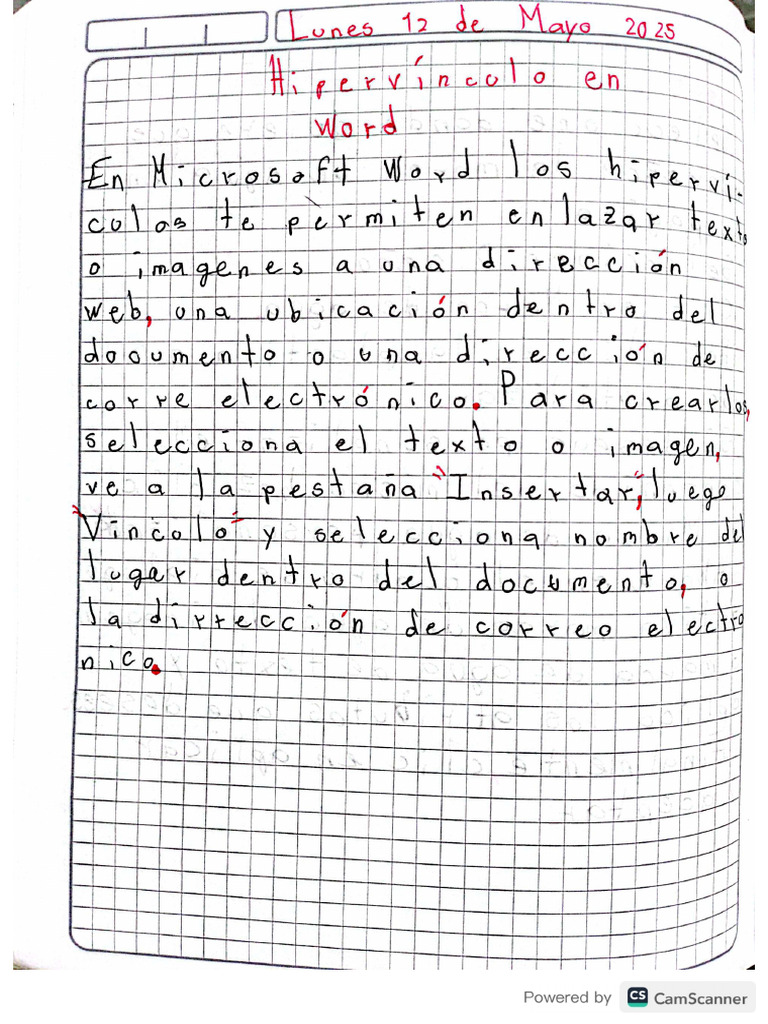 Lunes 12 de Mayo 2025
Hipervínculo en
Word
En Microsoft Word los hiperví-
culos te permiten enlazar texto
o imagenes a una dirección
web, una ubicación dentro del
documento o una dirección de
corre electrónico. Para crearlos,
selecciona el texto o imagen,
ve a la pestaña "Insertar", luego
"Vinculo" y selecciona nombre del
lugar dentro del documento, o
la dirrección de correo electro
nico.
Powered by CS CamScanner